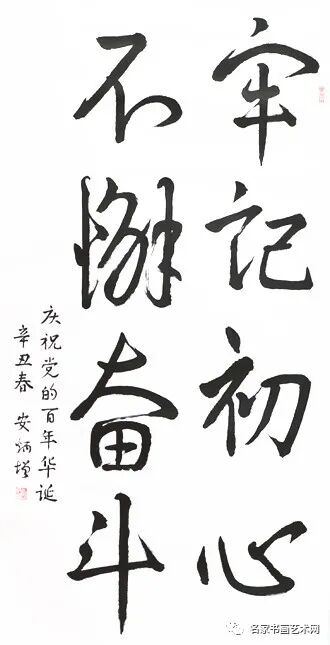 牢记初心
不懈奋斗
庆祝党的百年华诞
辛丑春 安炳墐
名家书画艺术网